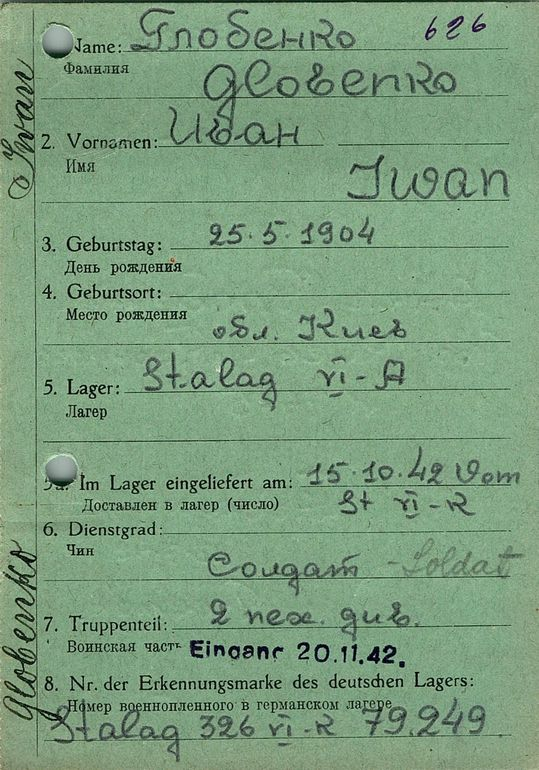 626
Name: Глобенко
Фамилия
Globenko
2. Vornamen: Иван
Имя
Iwan
3. Geburtstag: 25.5.1904
День рождения
4. Geburtsort:
Место рождения
обл. Киев
5. Lager: Stalag VI-A
Лагер
5a. Im Lager eingeliefert am: 15.10.42 Vom
Доставлен в лагер (число) St VI-K
6. Dienstgrad:
Чин
Солдат - Soldat
7. Truppenteil: 2 пех. див.
Воинская часть Eingang 20.11.42.
8. Nr. der Erkennungsmarke des deutschen Lagers:
Номер военнопленного в германском лагере
Stalag 326 VI-K 79.249
Iwan
Globenko